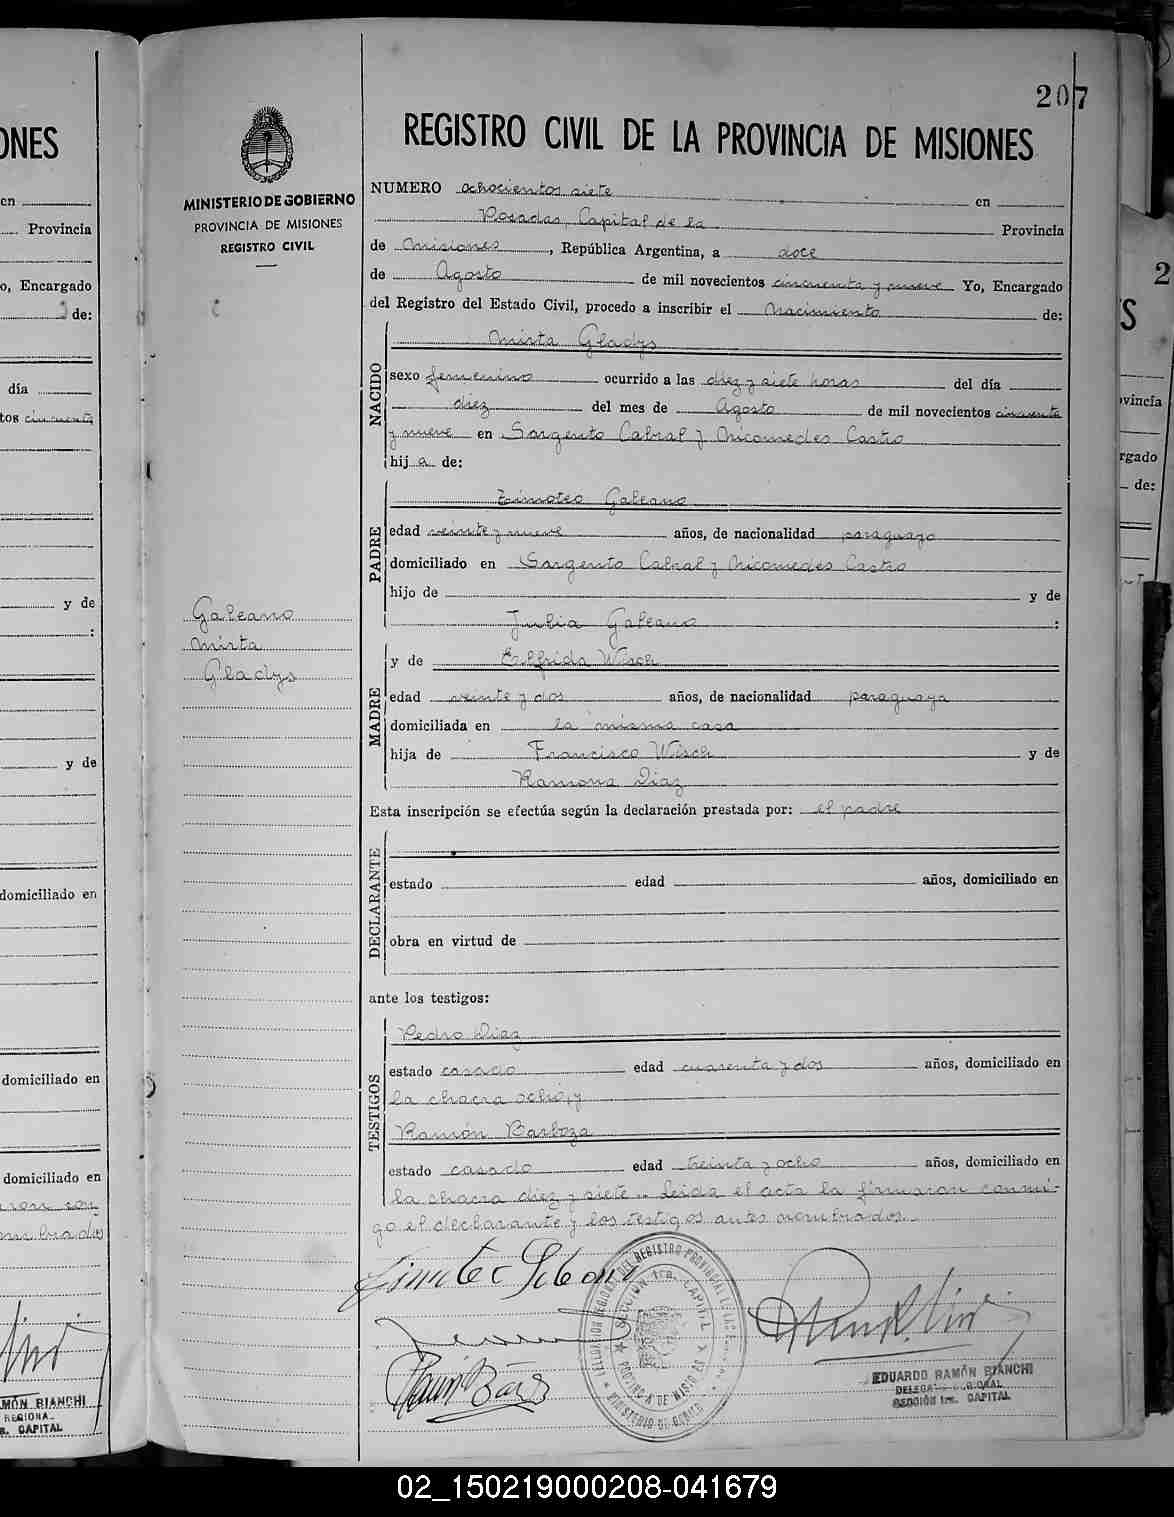 207
REGISTRO CIVIL DE LA PROVINCIA DE MISIONES
MINISTERIO DE GOBIERNO
PROVINCIA DE MISIONES
REGISTRO CIVIL
NUMERO ochocientos siete en
Posadas, Capital de la Provincia
de Misiones, República Argentina, a doce
de Agosto de mil novecientos cincuenta y nueve Yo, Encargado
del Registro del Estado Civil, procedo a inscribir el Nacimiento de:
NACIDO
Mirta Gladys
sexo femenino ocurrido a las diez y siete horas del día
diez del mes de Agosto de mil novecientos cincuenta
y nueve en Sargento Cabral y Nicomedes Castro
hij a de:
PADRE
Timoteo Galeano
edad veinte y nueve años, de nacionalidad paraguayo
domiciliado en Sargento Cabral y Nicomedes Castro
hijo de y de
Julia Galeano :
Galeano
Mirta
Gladys
MADRE
y de Elfrida Wisch
edad veinte y dos años, de nacionalidad paraguaya
domiciliada en la misma casa
hija de Francisco Wisch y de
Ramona Diaz
Esta inscripción se efectúa según la declaración prestada por: el padre
DECLARANTE
estado edad años, domiciliado en
obra en virtud de
ante los testigos:
TESTIGOS
Pedro Diaz
estado casado edad cuarenta y dos años, domiciliado en
la chacra ocho, y
Ramón Barboza
estado casado edad treinta y ocho años, domiciliado en
la chacra diez y siete.. Leida el acta la firmaron conmi-
go el declarante y los testigos antes nombrados.
EDUARDO RAMÓN BIANCHI
SECCIÓN 1ra. CAPITAL
ONES
en
Provincia
o, Encargado
de:
día
tos cincuenta
y de
:
y de
domiciliado en
domiciliado en
domiciliado en
MÓN BIANCHI
REGIONA
CAPITAL
2
S
vincia
rgado
de:
02_150219000208-041679